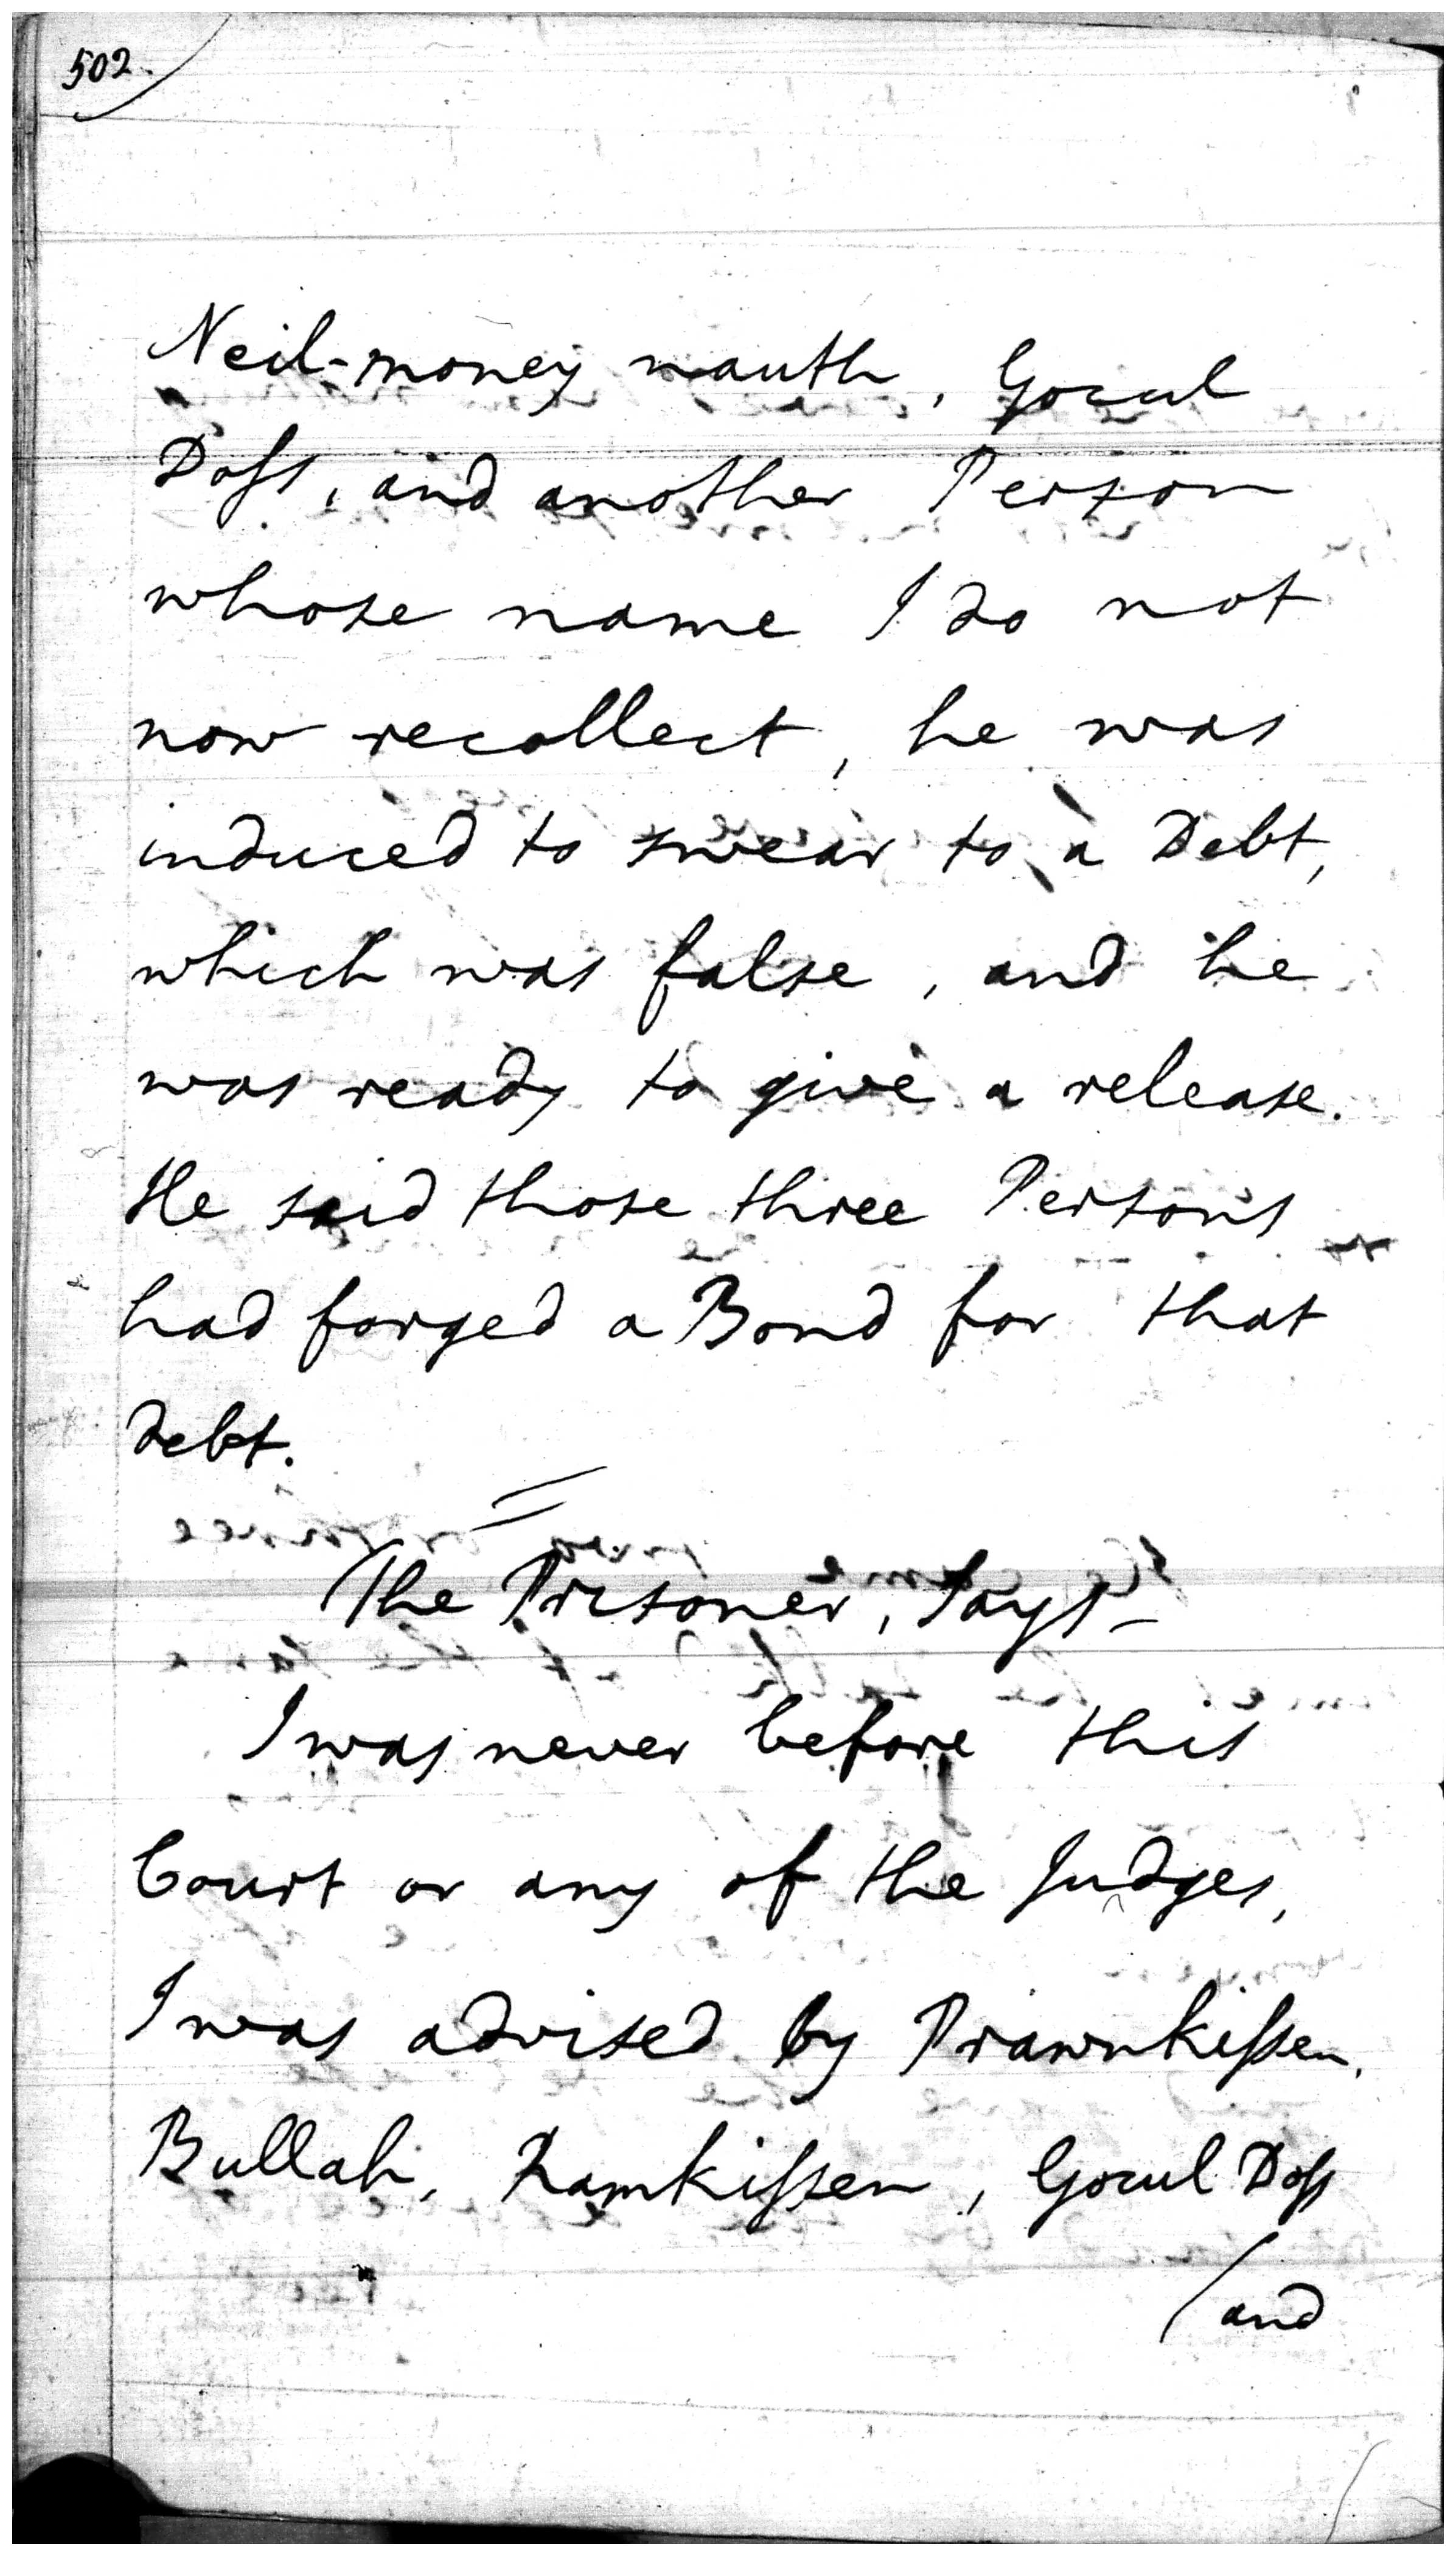 502.
Neil-money nauth, Gocul
Doss, and another Person
whose name I do not
now recollect, he was
induced to swear to a Debt,
which was false, and he
was ready to give a release.
He said those three Persons
had forged a Bond for that
debt.
The Prisoner, Says-
I was never before this
Court or any of the Judges,
I was advised by Prawnkissen,
Bullah, Ramkissen, Gocul Doss
(and